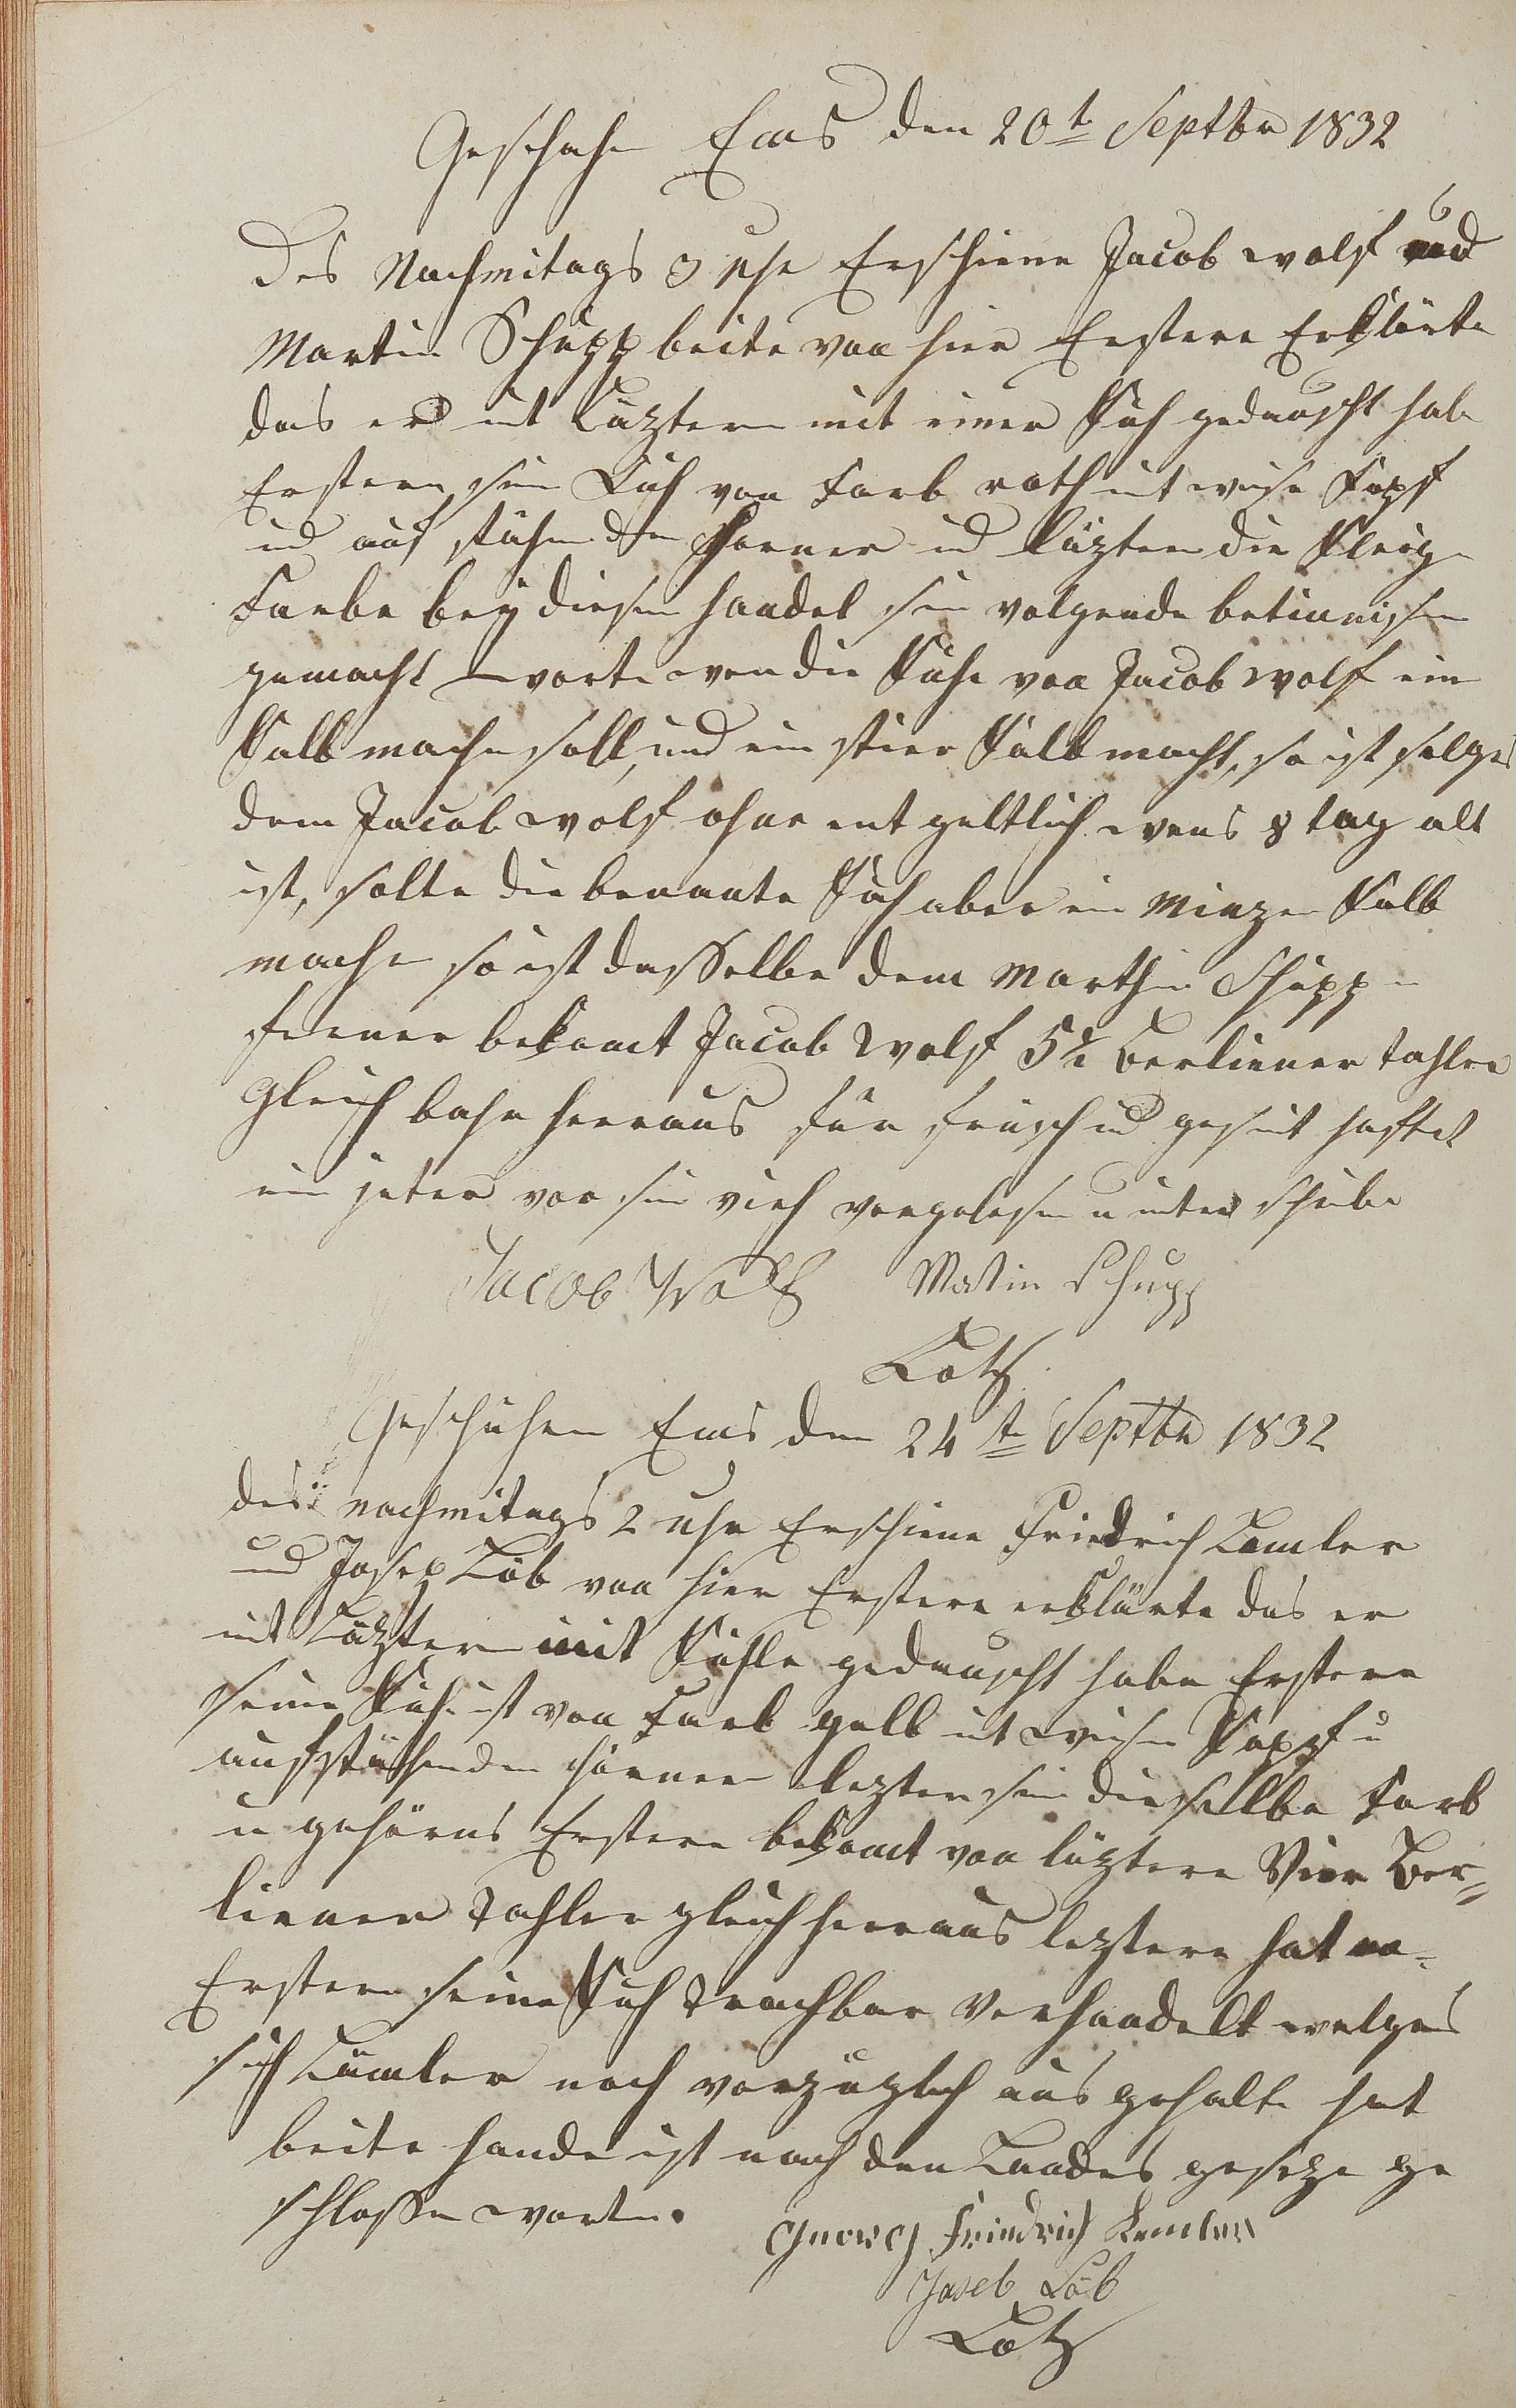 Geschehe Ems den 20t Septbr 1832
Des Nachmitags 3 uhr Erschiene Jacob wolf und
Martin Schupp beite von hier Erstere Erklärte
das er mit Läztern mit einer Kuh gedauscht habe
Erstern sein Kuh von Farb roth mit weise Kopf
und auf stehenden Horner und läztern die Gleige
Farbe bey diesen handel sin volgende betinnissen
gemacht worte wen die Kuhe von Jacob wolf ein
Kalb mache soll, und ein stier Kalb macht, so ist solges
dem Jacob wolf ohne entgeltlich wens 8 tag alt
ist, solte die benante Kuh aber ein Minzen Kalb
mache so ist dasselbe dem Marthin Schupp
ferner bekomt Jacob Wolf 5½ Berliener tahler
Gleich bahr herraus für frisch und gesunt haftet
ein jeter vor sein vieh vorgelesen u unterschribe
Jacob Wolf Matin Schupp
Lotz
Geschehen Ems den 24t Septbr 1832
des nachmitags 2 uhr Erschiene Friedrich Lemler
und Josep Löb von hier Erstere erklärte das er
mit Läztern mit Kuhle gedauscht habe Erstere
seine Kuh ist von Farb gelb mit weisen Kopf u
aufstehenden hörner leztern sein dieselbe Farb
u gehörns Erstere bekomt von läztere Vier Ber-
liener Tahler gleich herraus leztere hat von
Erstern seine Kuh Trachbar Verhandelt welges
sich Lämler noch vorzüglich aus gehalte hat
beite hande ist nach den Landes geseze ge
schlossen worten.
Georg Friedrich Lemler
Joseb Löb
Lotz